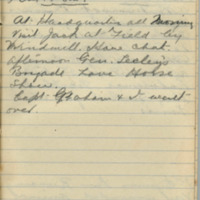 At Headquarters all Morning
Visit Jack at Field by
Windmill. Have chat.
afternoon Gen. Seeley's
Brigade have Horse
Show.
Capt Graham & I went
over.